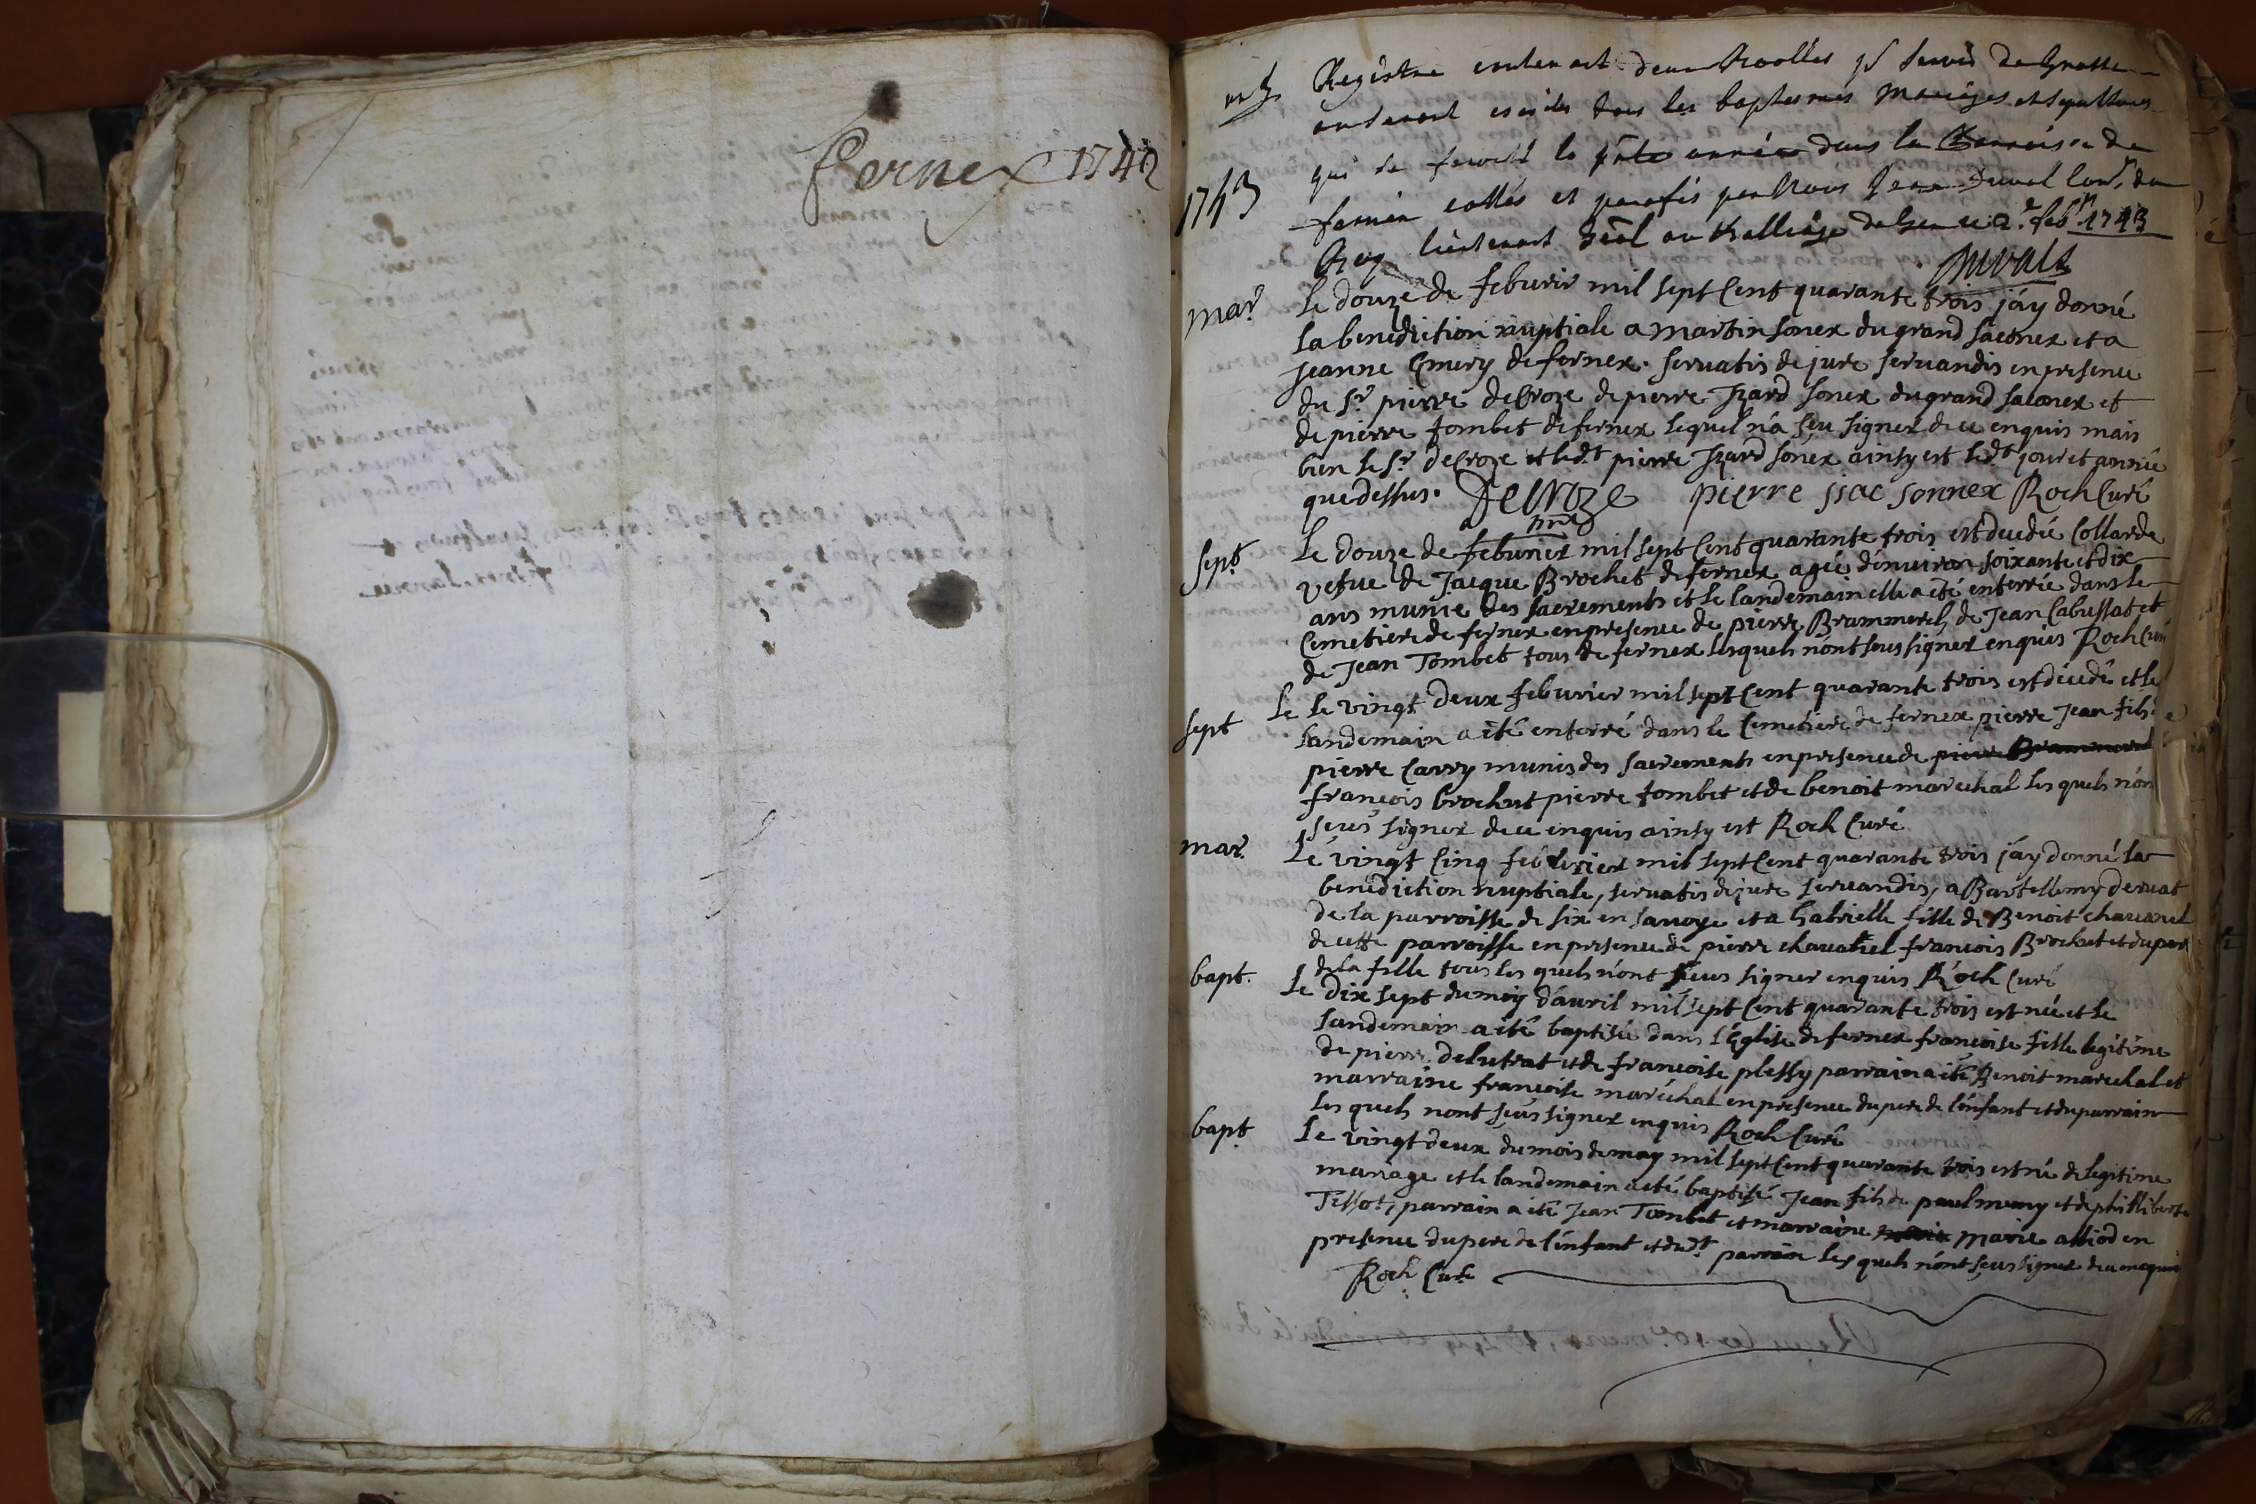 fernex 1742
Registre contenant deux Roolles p.r servir de Grosse
ou seront escrits tous les baptesmes Mariages et sepultures
qui se feront la pnte année dans la Parroisse de
1743
fernex cottés et parafés par Nous Jean Duval Con.r du
Roy lieutenant gñal au Balliage de Gex ce 2.e feb.r 1743
Duval
mar.
Le douze de feburier mil sept Cent quarante trois j'ay donné
la benediction nuptiale a martin sonex du grand saconex et a
jeanne Emery de fernex. servatis de jure servandis en presence
du Sr. pierre decroze de pierre Jzard sonex du grand saconex et
de pierre tombet de fernex lequel n'a sçeu signer de ce enquis mais
bien le Sr. decroze et led.t pierre Jzard sonex ainsy est led.t jour et année
que dessus. Decroze pierre ssac sonnex Roch Curé
sept
Le douze de feburier mil sept Cent quarante trois est decedée Collarde
vefue de Jacque Brochet de fernex agée d'enuiron soixante et dix
ans munie des sacrements et le landemain elle a été enterrée dans le
Cemetiere de fernex en presence de pierre Brammerel, de Jean Cabussat et
de Jean Tombet tous de fernex lesquels n'ont seus signer enquis Roch Curé
sept
Le le vingt deux feburier mil sept Cent quarante trois est décedé et le
landemain a été enterré dans le Cemetiere de fernex pierre Jean fils de
pierre Carry munis des sacrements en presence de pierre Brammerel
françois brochut pierre tombet et de benoit maréchal les quels n'on
seus signer de ce enquis ainsy est Roch Curé
mar.
Le vingt Cinq feburier mil sept Cent quarante trois j'ay donné la
benediction nuptiale, servatis de jure servandis, a Bartellemy deruat
de la parroisse de six en sauoye et a Gabrielle fille de Benoit chauanel
de cette parroisse en presence de pierre chauanel francois Brochut et du pere
de la fille tous les quels n'ont seus signer enquis Roch Curé
bapt.
Le dix sept du moy d'auril mil sept Cent quarante trois est née et le
landemain a été baptisée dans l'Eglise de fernex francoise fille legitime
de pierre delutrat et de francoise plessy parrain a été Benoit marechal et
marraine francoise maréchal en presence du pere de l'enfant et du parrain
les quels nont seus signer enquis Roch Curé
bapt.
Le vingt deux du mois de may mil sept Cent quarante trois est né de legitime
mariage et le landemain a été baptisé Jean fils de paul muny et de philliberte
Tissot, parrain a été Jean Tombet et marraine marie Marie assiod en
presence du pere de l'enfant et dud.t parrain les quels n'ont seus signer de ce enquis
Roch Curé